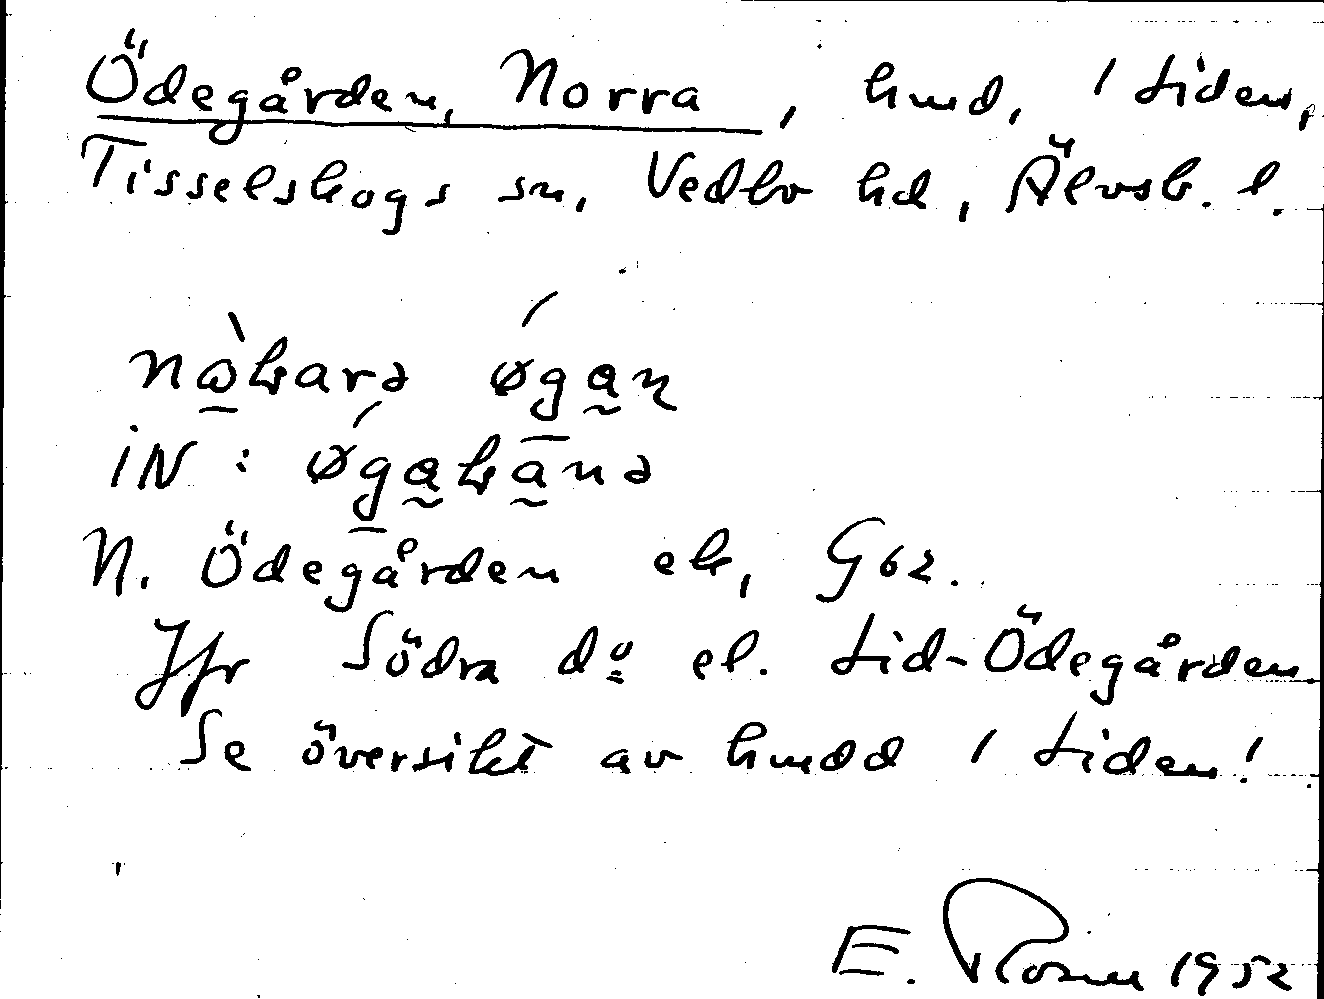 Ödegården, Norra, hmd, 1 Liden,
Tisselskogs sn, Vedbo hd, Älvsb. l.
iN:
N. Ödegården ek, G 62.
Jfr Södra dº el. Lid-Ödegården.
Se översikt av hmdd 1 Liden!
E. Rosin 1952